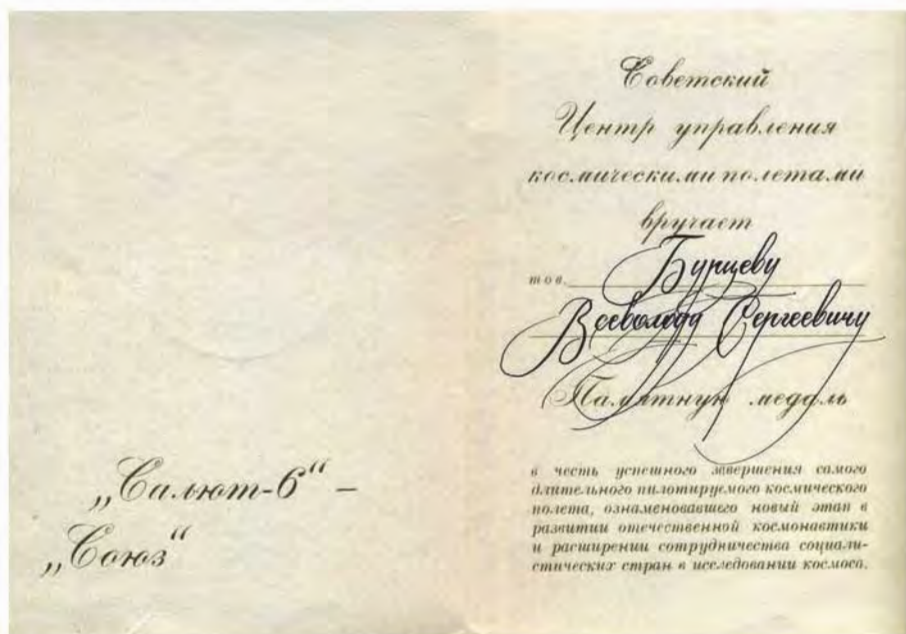 „Салют-6“ –
„Союз“
Советский
Центр управления
космическими полетами
вручает
тов. Бурцеву
Всеволоду Сергеевичу
Памятную медаль
в честь успешного завершения самого
длительного пилотируемого космического
полета, ознаменовавшего новый этап в
развитии отечественной космонавтики
и расширении сотрудничества социали-
стических стран в исследовании космоса.